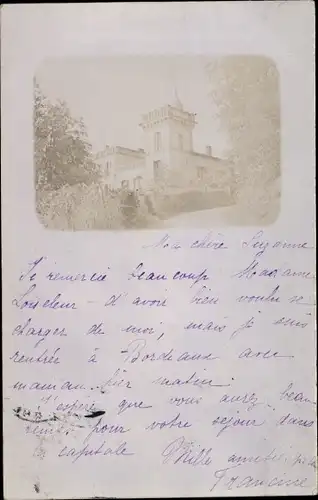 Ma chère Suzanne
Je remercie beaucoup Madame
d'avoir bien voulu se
charger de moi, mais je suis
rentrée à Bordeaux avec
maman hier matin.
J'espère que vous aurez beau
temps pour votre séjour dans
la capitale Mille amitiés
Francine